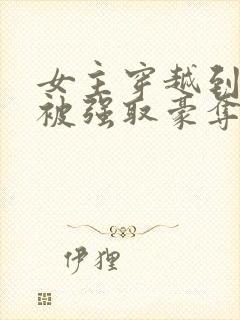 女主穿越到
被强取豪夺
伊狸